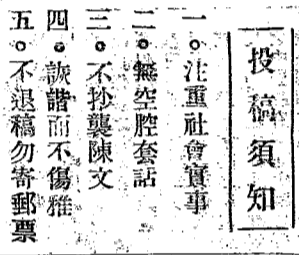 投稿須知
一。注重社會實事
二。無空腔套話
三。不抄襲陳文
四。詼諧而不傷雅
五。不退稿勿寄郵票